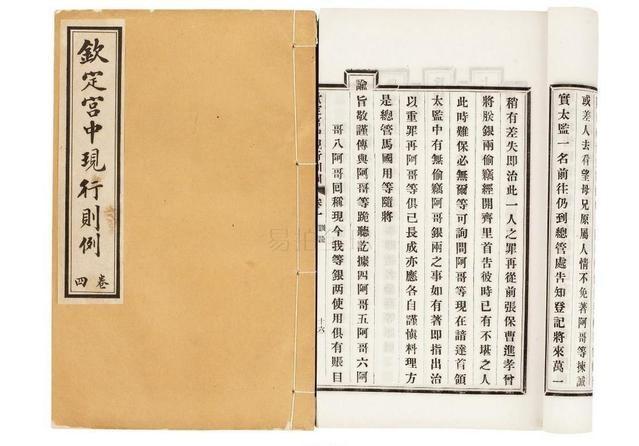 欽定宮中現行則例
四卷
或差人去看望母兄原屬人情不免著阿哥等揀誠
實太監一名前往仍到總管處告知登記將來萬一
稍有差失即治此一人之罪再從前張保曹進孝曾
將胺銀兩偷竊經開齊里首告彼時已有不堪之人
此時難保必無爾等可詢問阿哥等現在諳達首領
太監中有無偷竊阿哥銀兩之事如有著即指出治
以重罪再阿哥等俱已長成亦應各自謹慎料理方
是總管馬國用等隨將
諭旨敬謹傳與阿哥等跪聽訖據四阿哥五阿哥六阿
哥八阿哥回稱現今我等銀兩使用俱有賬目
卷一
十六
易拍